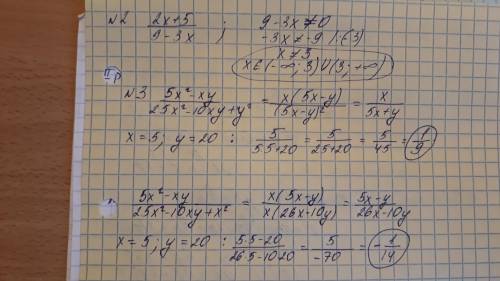 №2 (2x+5)/(9-3x) ; 9-3x≠0
-3x≠-9 |:(-3)
x≠3
x∈(-∞;3)∪(3;+∞)
IIр
№3 (5x²-xy)/(25x²-10xy+y²) = x(5x-y)/(5x-y)² = x/(5x+y)
x=5; y=20 : 5/(5·5+20) = 5/(25+20) = 5/45 = 1/9
(5x²-xy)/(25x²-10xy+x²) = x(5x-y)/x(26x-10y) = (5x-y)/(26x-10y)
x=5; y=20 : (5·5-20)/(26·5-10·20) = 5/(-70) = -1/14